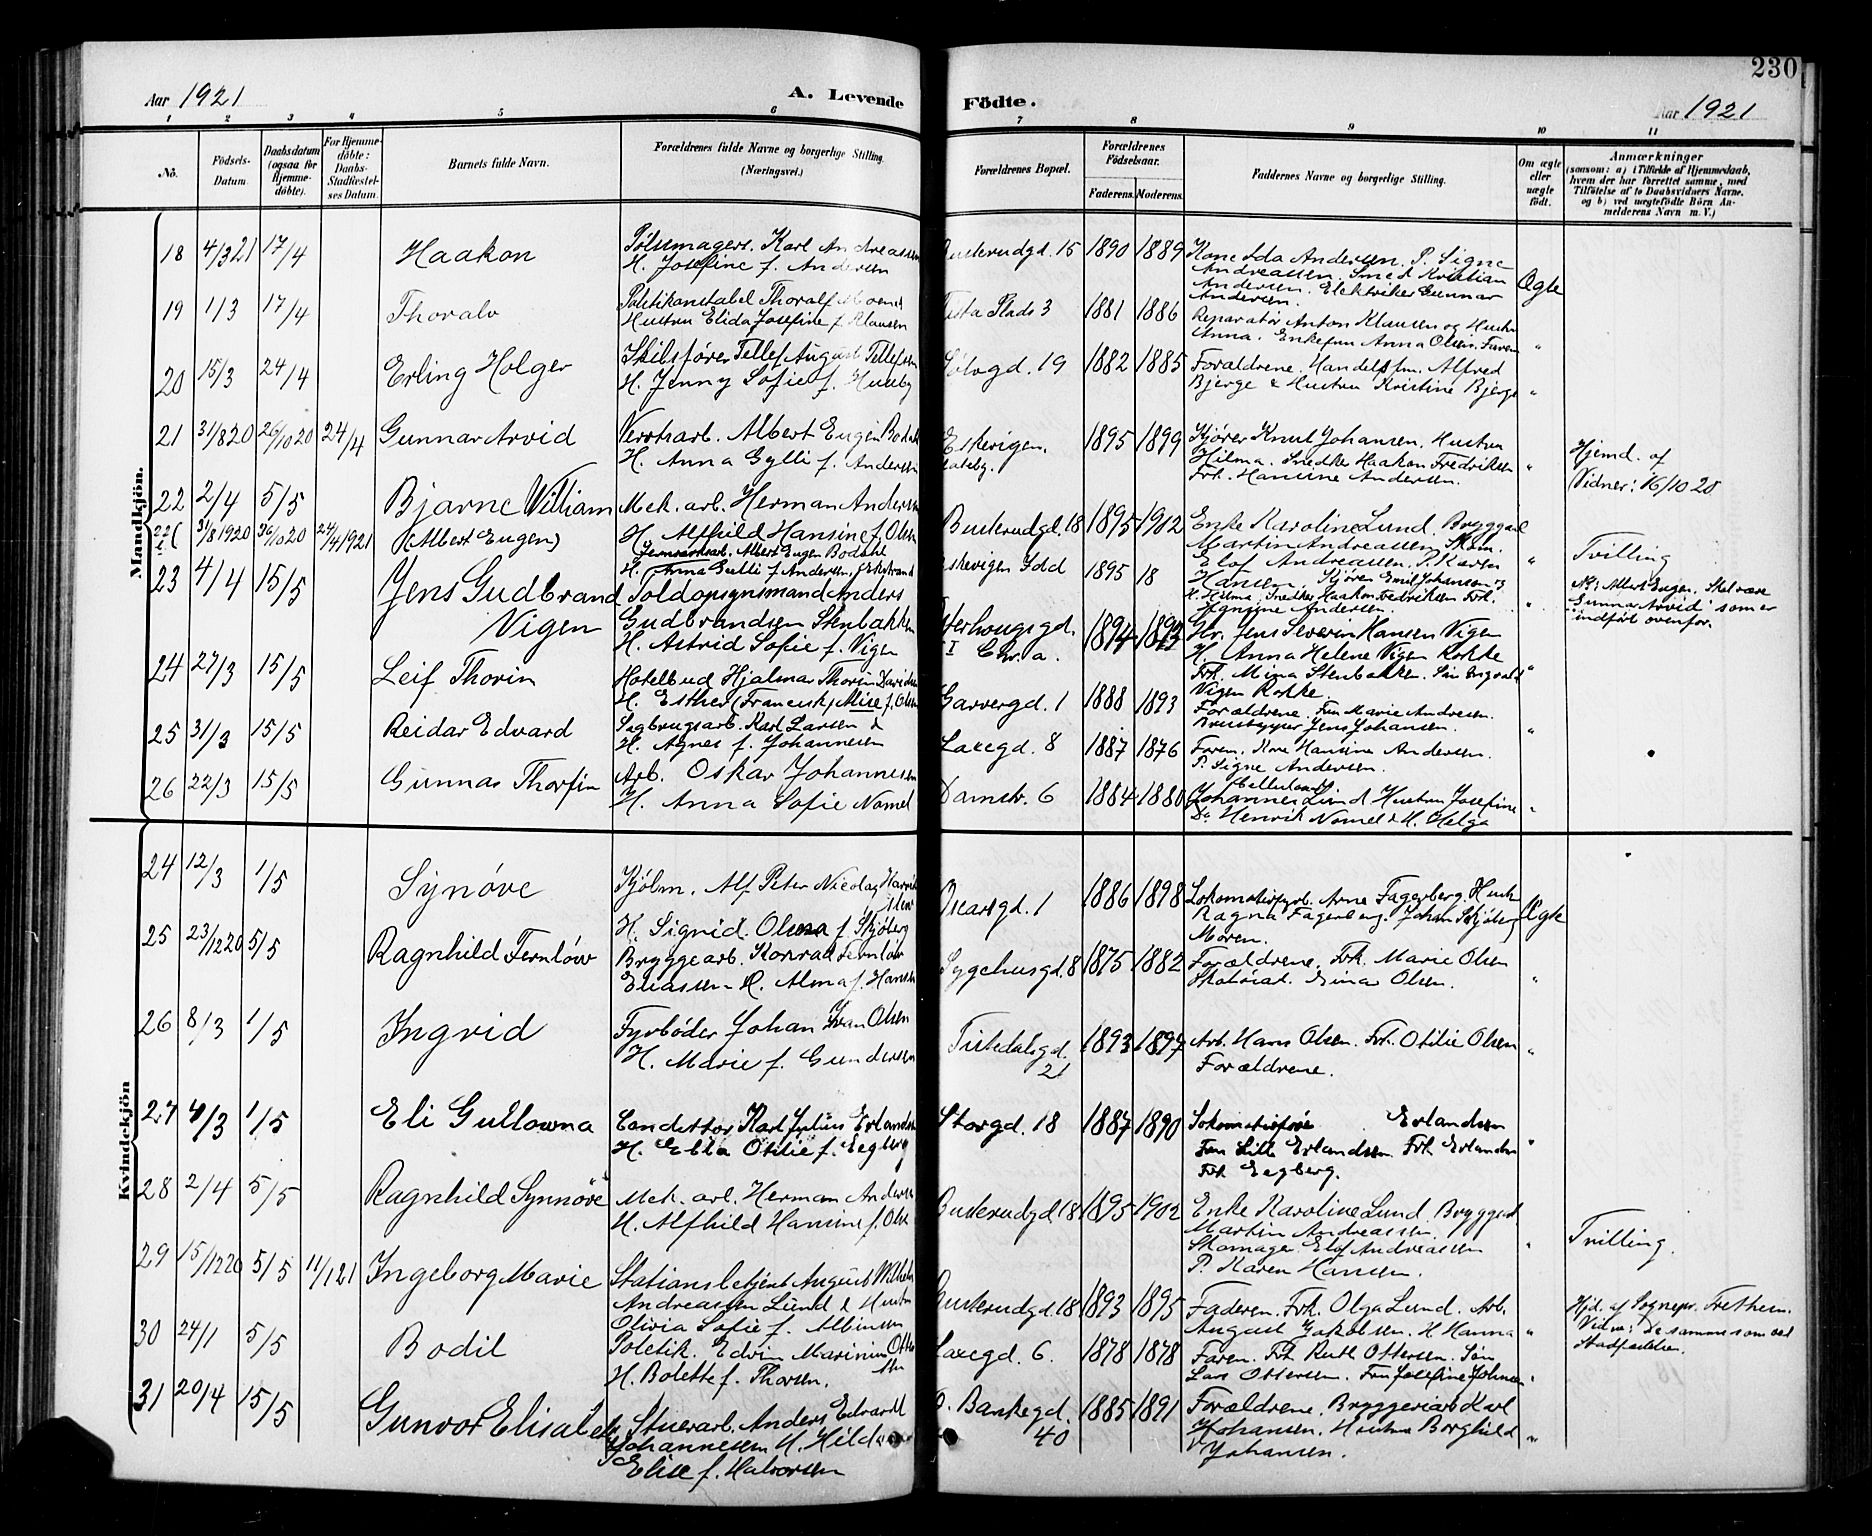 230
Aar 1921
A. Levende
Födte.
Aar 1921
1 2 3 4 5 6 7 8 9 10 11
No.
Födsels-Datum.
Daabsdatum (ogsaa for Hjemme-döbte).
For Hjemme-döbte: Daabs-Stadfæstel-ses Datum.
Barnets fulde Navn.
Forældrenes fulde Navne og borgerlige Stilling. (Næringsvei.)
Forældrenes Bopæl.
Forældrenes Födselsaar.
Faderens. Moderens.
Faddernes Navne og borgerlige Stilling.
Om ægte eller uægte födt.
Anmærkninger
(saasom: a) i Tilfælde af Hjemmedaab, hvem der har forrettet samme, med Tilföielse af to Daabsvidners Navne. og b) ved uægtefödte Börn An-melderens Navn m. V.)
Mandkjön.
18 4/3 21 17/4 Haakon
Pølsemager. Karl Andreassen
H. Josefine f. Andersen
Buskerudgd. 15 1890 1889
Kone Ida Andersen. P. Signe
Andreassen. Smed Kristian
Andersen. Elektriker Gunnar
Andersen.
Ægte
19 1/3 17/4 Thoralv
Politikonstabel Thoralf
Hustru Elida Josefine f. Klausen
Tista Plads 3 1881 1886
Reparatør Anton Klausen og Hustru
Anna. Enkefru Anna Olsen.
20 15/3 24/4 Erling Holger
Skibsfører Tellef August Tellefsen
H. Jenny Sofie f. Huseby
Sølvgd. 19 1882 1885
Forældrene. Handelsfm. Alfred
Bjerge & Hustru Kristine Bjerge "
21 31/8 20 26/10 20 24/4 Gunnar Arvid
Verkstarb. Albert Eugen Bodahl
H. Anna Gylli f. Andersen
Eskevigen. 1895 1899
Kjører Knut Johansen. Hustru
Hilma. Snedker Haakon Fredriksen
Frk. Hansine Andersen. "
Hjemd. af
Vidner: 16/10 20
22 2/4 5/5 Bjarne William
Mek. arb. Herman Andersen
H. Alfhild Hansine f. Olsen
Buskerudgd. 18 1895 1902
Enke Karoline Lund. Bryggearb.
Martin Andreassen. Skom.
Elof Andreassen. P. Karen
Hansen. "
Tvilling
31/8 1920 24/4 1921 (Albert Eugen)
Albert Eugen Bodahl
H. Anna Gulli f. Andersen,
Eskevigen Idd 1895 18
Kjører Emil Johansen og
H. Hilma. Snedker Haakon Fredriksen Frk.
Hansine Andersen. "
Nb: Albert Eugen. Skal være
"Gunnar Arvid" som er
indført ovenfor.
23 4/4 15/5 Jens Gudbrand
Vigen
Toldopsynsmand Anders
Gudbrandsen Stenbakken
H. Astrid Sofie f. Vigen
Chr.a. 1894 1893
Hr. Jens Severin Hansen Vigen
H. Anna Helene Vigen Rokke
Frk. Mina Stenbakken. Søn Ingvald
Vigen Rokke. "
24 27/3 15/5 Leif Thorin
Hotelbud Hjalmar Thorin Davidsen
H. Esther (Francisk) Alise f. Olsen
Garvergd. 1 1888 1893
Forældrene. Fru Marie Andresen.
Jens Johansen. "
25 31/3 15/5 Reidar Edvard
Sagbrugsarb. Karl Larsen &
H. Agnes f. Johannesen
Laxegd. 8 1887 1876
Faren. Kone Hansine Andersen.
P. Signe Andersen.
26 22/3 15/5 Gunnar Thorfin
Arb. Oskar Johannesen
H. Anna Sofie Nomel
Damstr. 6 1884 1880
Johannes Lund Hustru Josefine
Do Henrik Nomel & H. Helga "
Kvindekjön
24 12/3 1/5 Synøve
Kjøbm. Alf Peter Nicolay
H. Sigrid Olava f. Skjøberg
Oscarsgd. 1 1886 1898
Lokomotivfyrb. Arne Fagerberg. Hustr.
Ragna Fagerberg. Johan Skjøberg
Moren.
Ægte
25 23/12 20 5/5 Ragnhild Fernløw
Bryggearb. Konrad Fernløw
Eliassen H. Alma f. Hansen
Sygehusgd. 8 1875 1882
Forældrene. Frk. Marie Olsen
Olsen. "
26 8/3 1/5 Ingrid
Fyrbøder Johan Ivan Olsen
H. Marie f. Gundersen
Tistedalsgd. 21 1893 1897
Arb. Hans Olsen. Frk. Otilie Olsen
Forældrene. "
27 4/3 1/5 Eli Gullowna
Conditor Karl Julius Erlandsen
H. Ebba Otilie f. Eegberg
Storgd. 18 1887 1890
Lokomotivfører Erlandsen
Fru Lilli Erlandsen Frk Erlandsen
Frk. Eegberg. "
28 2/4 5/5 Ragnhild Synnøve
Mek. arb. Herman Andersen
H. Alfhild Hansine f. Olsen
Buskerudgd. 18 1895 1902
Enke Karoline Lund. Bryggearb.
Martin Andreassen.
Skomager Elof Andreassen
P. Karen Hansen. "
Tvilling.
29 15/12 20 5/5 11/1 21 Ingeborg Marie
Stationsbetjent August Wilhelm
Andreassen Lund & Hustru
Olivia Sofie f. Albinsen
Buskerudgd. 18 1893 1895
Faderen. Frk. Olga Lund. Arb.
August Jakobsen. H Hanna "
Hjd. af Sognepr. Trethem.
Vidne: De samme som ved
Stadfæstelsen.
30 24/1 5/5 Bodil
Politik. Edvin Marinius Otter-
sen
H. Bolette f. Thorsen.
Laxegd. 6. 1878 1878
Faren. Frk Ruth Ottersen. Søn
Lars Ottersen. Fru Josefine Johnsen "
31 20/4 15/5 Gunvor Elisabeth
Stuerarb. Anders Edvardt
Johannesen H. Hilda
Elise f. Halvorsen
O. Bankegd. 40 1885 1891
Forældrene. Bryggeriarb Karl
Johansen. Hustru Borghild
Johansen. "